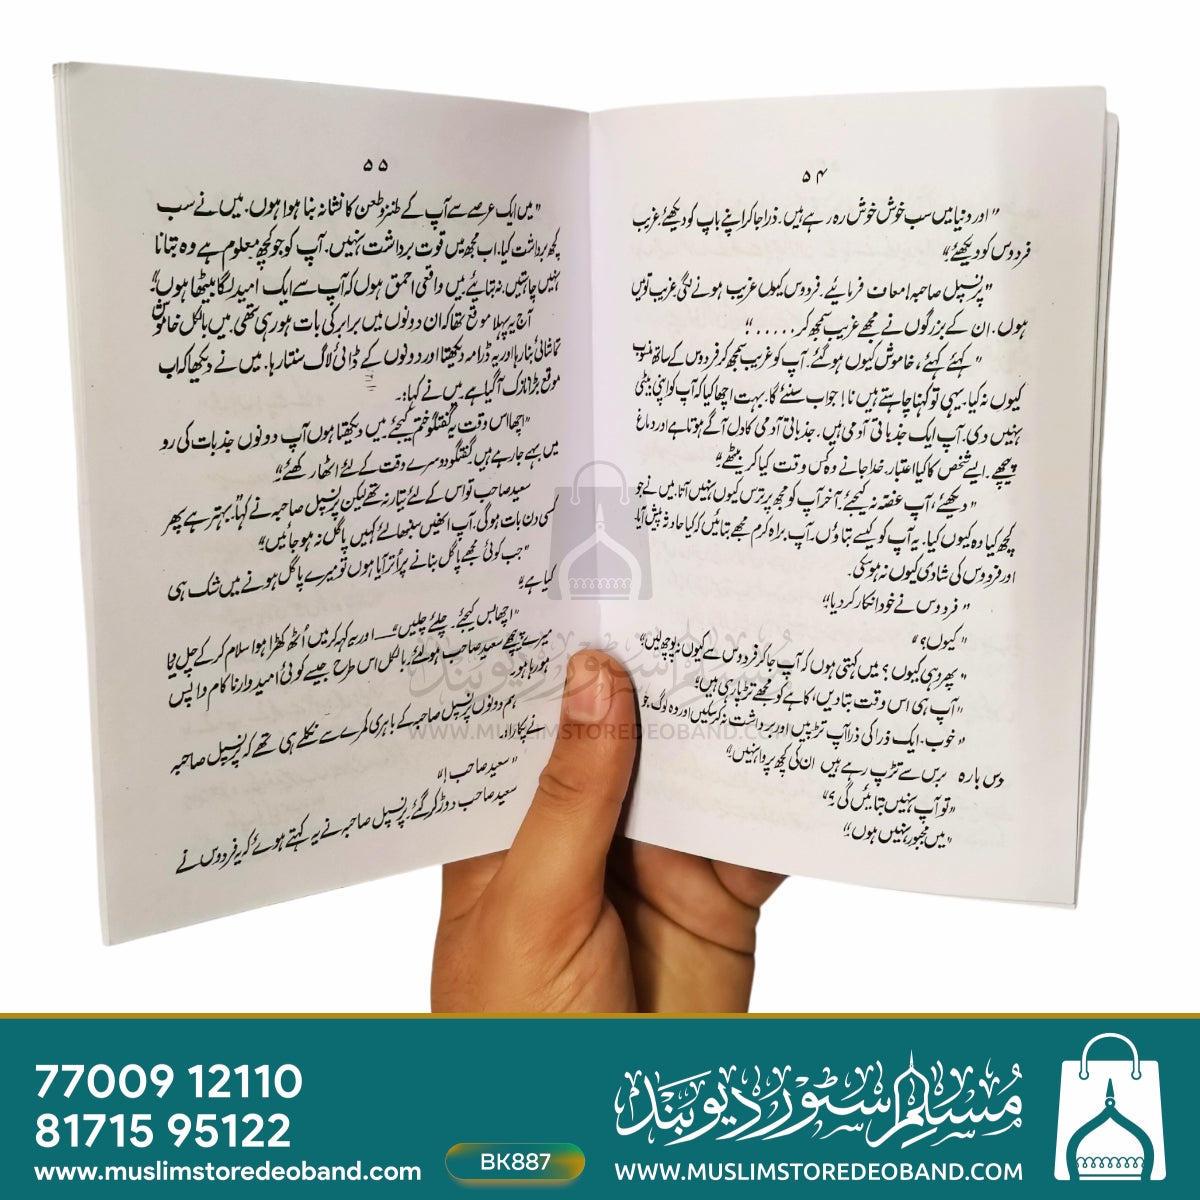 ۵۴
"اور دنیا میں سب خوش خوش رہ رہے ہیں. ذرا جا کر اپنے باپ کو دیکھئے، غریب
فردوس کو دیکھئے."
"پرنسپل صاحبہ! معاف فرمائیے. فردوس کیوں غریب ہونے لگی غریب تو میں
ہوں. ان کے بزرگوں نے مجھے غریب سمجھ کر ....."
"کہئے کہئے، خاموش کیوں ہو گئے. آپ کو غریب سمجھ کر فردوس کے ساتھ منسوب
کیوں نہ کیا. یہی تو کہنا چاہتے ہیں نا! جواب سنئے گا. بہت اچھا کیا کہ آپ کو اپنی بیٹی
نہیں دی. آپ ایک جذباتی آدمی ہیں. جذباتی آدمی کا دل آگے ہوتا ہے اور دماغ
پیچھے. ایسے شخص کا کیا اعتبار. خدا جانے وہ کس وقت کیا کر بیٹھے."
"دیکھئے، آپ غصہ نہ کیجئے. آخر آپ کو مجھ پر ترس کیوں نہیں آتا. میں نے جو
کچھ کیا وہ کیوں کیا. یہ آپ کو کیسے بتاؤں. آپ براہ کرم مجھے بتائیں کہ کیا حادثہ پیش آیا
اور فردوس کی شادی کیوں نہ ہو سکی.
"فردوس نے خود انکار کر دیا."
"کیوں؟"
"پھر وہی کیوں؟ میں کہتی ہوں کہ آپ جا کر فردوس سے کیوں نہ پوچھ لیں."
"آپ ہی اس وقت بتا دیں، کاہے کو مجھے تڑپا رہی ہیں."
"خوب. ایک ذرا کی ذرا آپ تڑپیں اور برداشت نہ کر سکیں اور وہ لوگ جو
دس بارہ برس سے تڑپ رہے ہیں ان کی کچھ پروا نہیں."
"تو آپ نہیں بتائیں گی؟"
"میں مجبور نہیں ہوں."
۵۵
"میں ایک عرصے سے آپ کے طنز و طعن کا نشانہ بنا ہوا ہوں. میں نے سب
کچھ برداشت کیا. اب مجھ میں قوت برداشت نہیں. آپ کو جو کچھ معلوم ہے وہ بتانا
نہیں چاہتیں. نہ بتائیے میں واقعی احمق ہوں کہ آپ سے ایک امید لگا بیٹھا ہوں."
آج یہ پہلا موقع تھا کہ ان دونوں میں برابر کی بات ہو رہی تھی. میں بالکل خاموش
تماشائی بنا رہا اور یہ ڈرامہ دیکھتا اور دونوں کے ڈائیلاگ سنتا رہا. میں نے دیکھا کہ اب
موقع بڑا نازک آ گیا ہے. میں نے کہا:۔
"اچھا اس وقت یہ گفتگو ختم کیجئے. میں دیکھتا ہوں آپ دونوں جذبات کی رو
میں بہے جا رہے ہیں. گفتگو دوسرے وقت کے لئے اٹھا رکھئے."
سعید صاحب تو اس کے لئے تیار نہ تھے لیکن پرنسپل صاحبہ نے کہا "بہتر ہے پھر
کسی دن بات ہو گی. آپ انھیں سنبھالے کہیں پاگل نہ ہو جائیں."
"جب کوئی مجھے پاگل بنانے پر اتر آیا ہوں تو میرے پاگل ہونے میں شک ہی
کیا ہے."
"اچھا بس کیجئے. چلئے چلیں"ــــ اور یہ کہہ کر میں اُٹھ کھڑا ہوا سلام کر کے چل دیا
میرے پیچھے سعید صاحب ہو لئے. بالکل اس طرح جیسے کوئی امیدوار ناکام واپس
ہو رہا ہو.
ہم دونوں پرنسپل صاحبہ کے باہری کمرے سے نکلے ہی تھے کہ پرنسپل صاحبہ
نے پکارا.
"سعید صاحب!"
سعید صاحب دوڑ کر گئے. پرنسپل صاحبہ نے یہ کہتے ہوئے کہ یہ فردوس نے
مسلم سٹور دیوبند
WWW.MUSLIMSTOREDEOBAND.COM
77009 12110
81715 95122
www.muslimstoredeoband.com
BK887
مسلم سٹور دیوبند
WWW.MUSLIMSTOREDEOBAND.COM